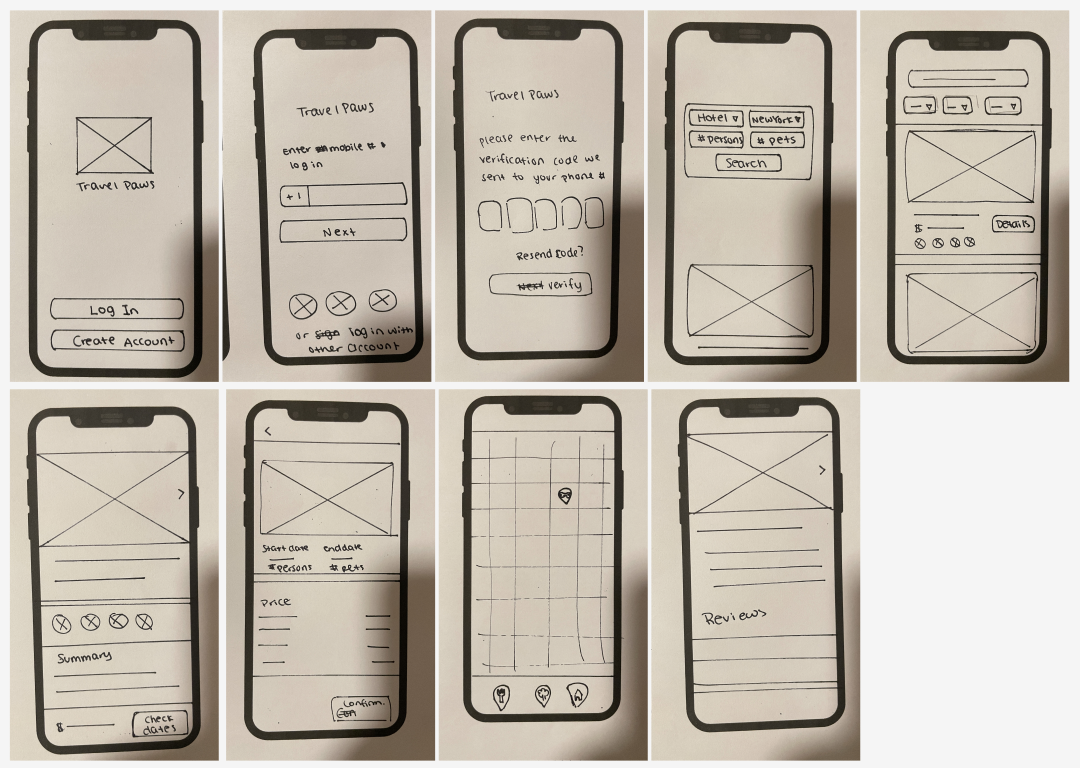 Travel Paws
Log In
Create Account
Travel Paws
Enter mobile # to
log in
+1
Next
or log in with
other account
Travel Paws
please enter the
verification code we
sent to your phone #
Resend code?
verify
Hotel
New York
# persons
# pets
Search
$
Details
Summary
$
check
dates
<
Start date
end date
# persons
# pets
Price
Confirm
>
>
Reviews